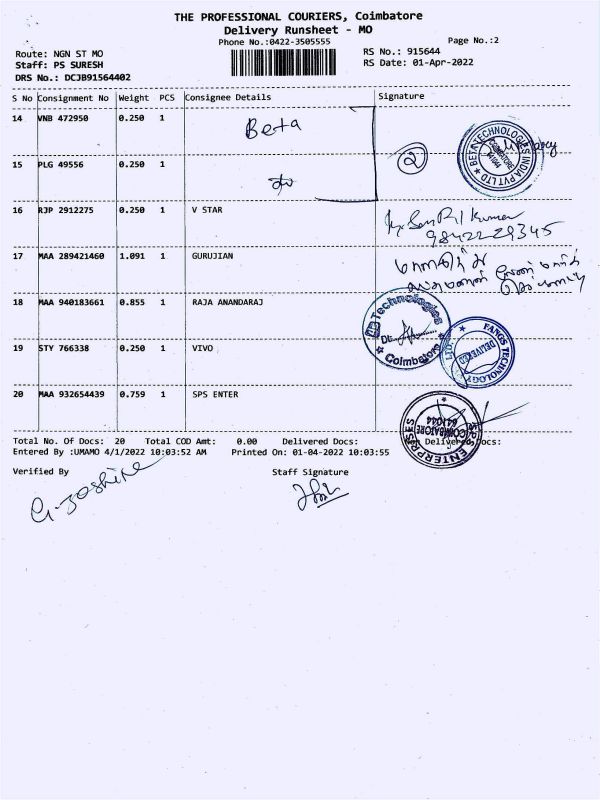 THE PROFESSIONAL COURIERS, Coimbatore
Delivery Runsheet - MO
Phone No.:0422-3505555
Page No.:2
Route: NGN ST MO
RS No.: 915644
Staff: PS SURESH
RS Date: 01-Apr-2022
DRS No.: DCJB91564402
S No Consignment No Weight PCS Consignee Details Signature
14 VNB 472950 0.250 1 Beta
2
BETA TECHNOLOGIES INDIA PVT LTD COIMBATORE 641044
15 PLG 49556 0.250 1
16 RJP 2912275 0.250 1 V STAR
Kumar
9842229345
17 MAA 289421460 1.091 1 GURUJIAN
18 MAA 940183661 0.855 1 RAJA ANANDARAJ
Technologies Coimbatore
19 STY 766338 0.250 1 VIVO
FANGS TECHNOLOGY LTD. DELIVERED
20 MAA 932654439 0.759 1 SPS ENTER
ENTERPRISES COIMBATORE 641044
Total No. Of Docs: 20 Total COD Amt: 0.00 Delivered Docs: Non Delivered Docs:
Entered By :UMAMO 4/1/2022 10:03:52 AM Printed On: 01-04-2022 10:03:55
Verified By Staff Signature